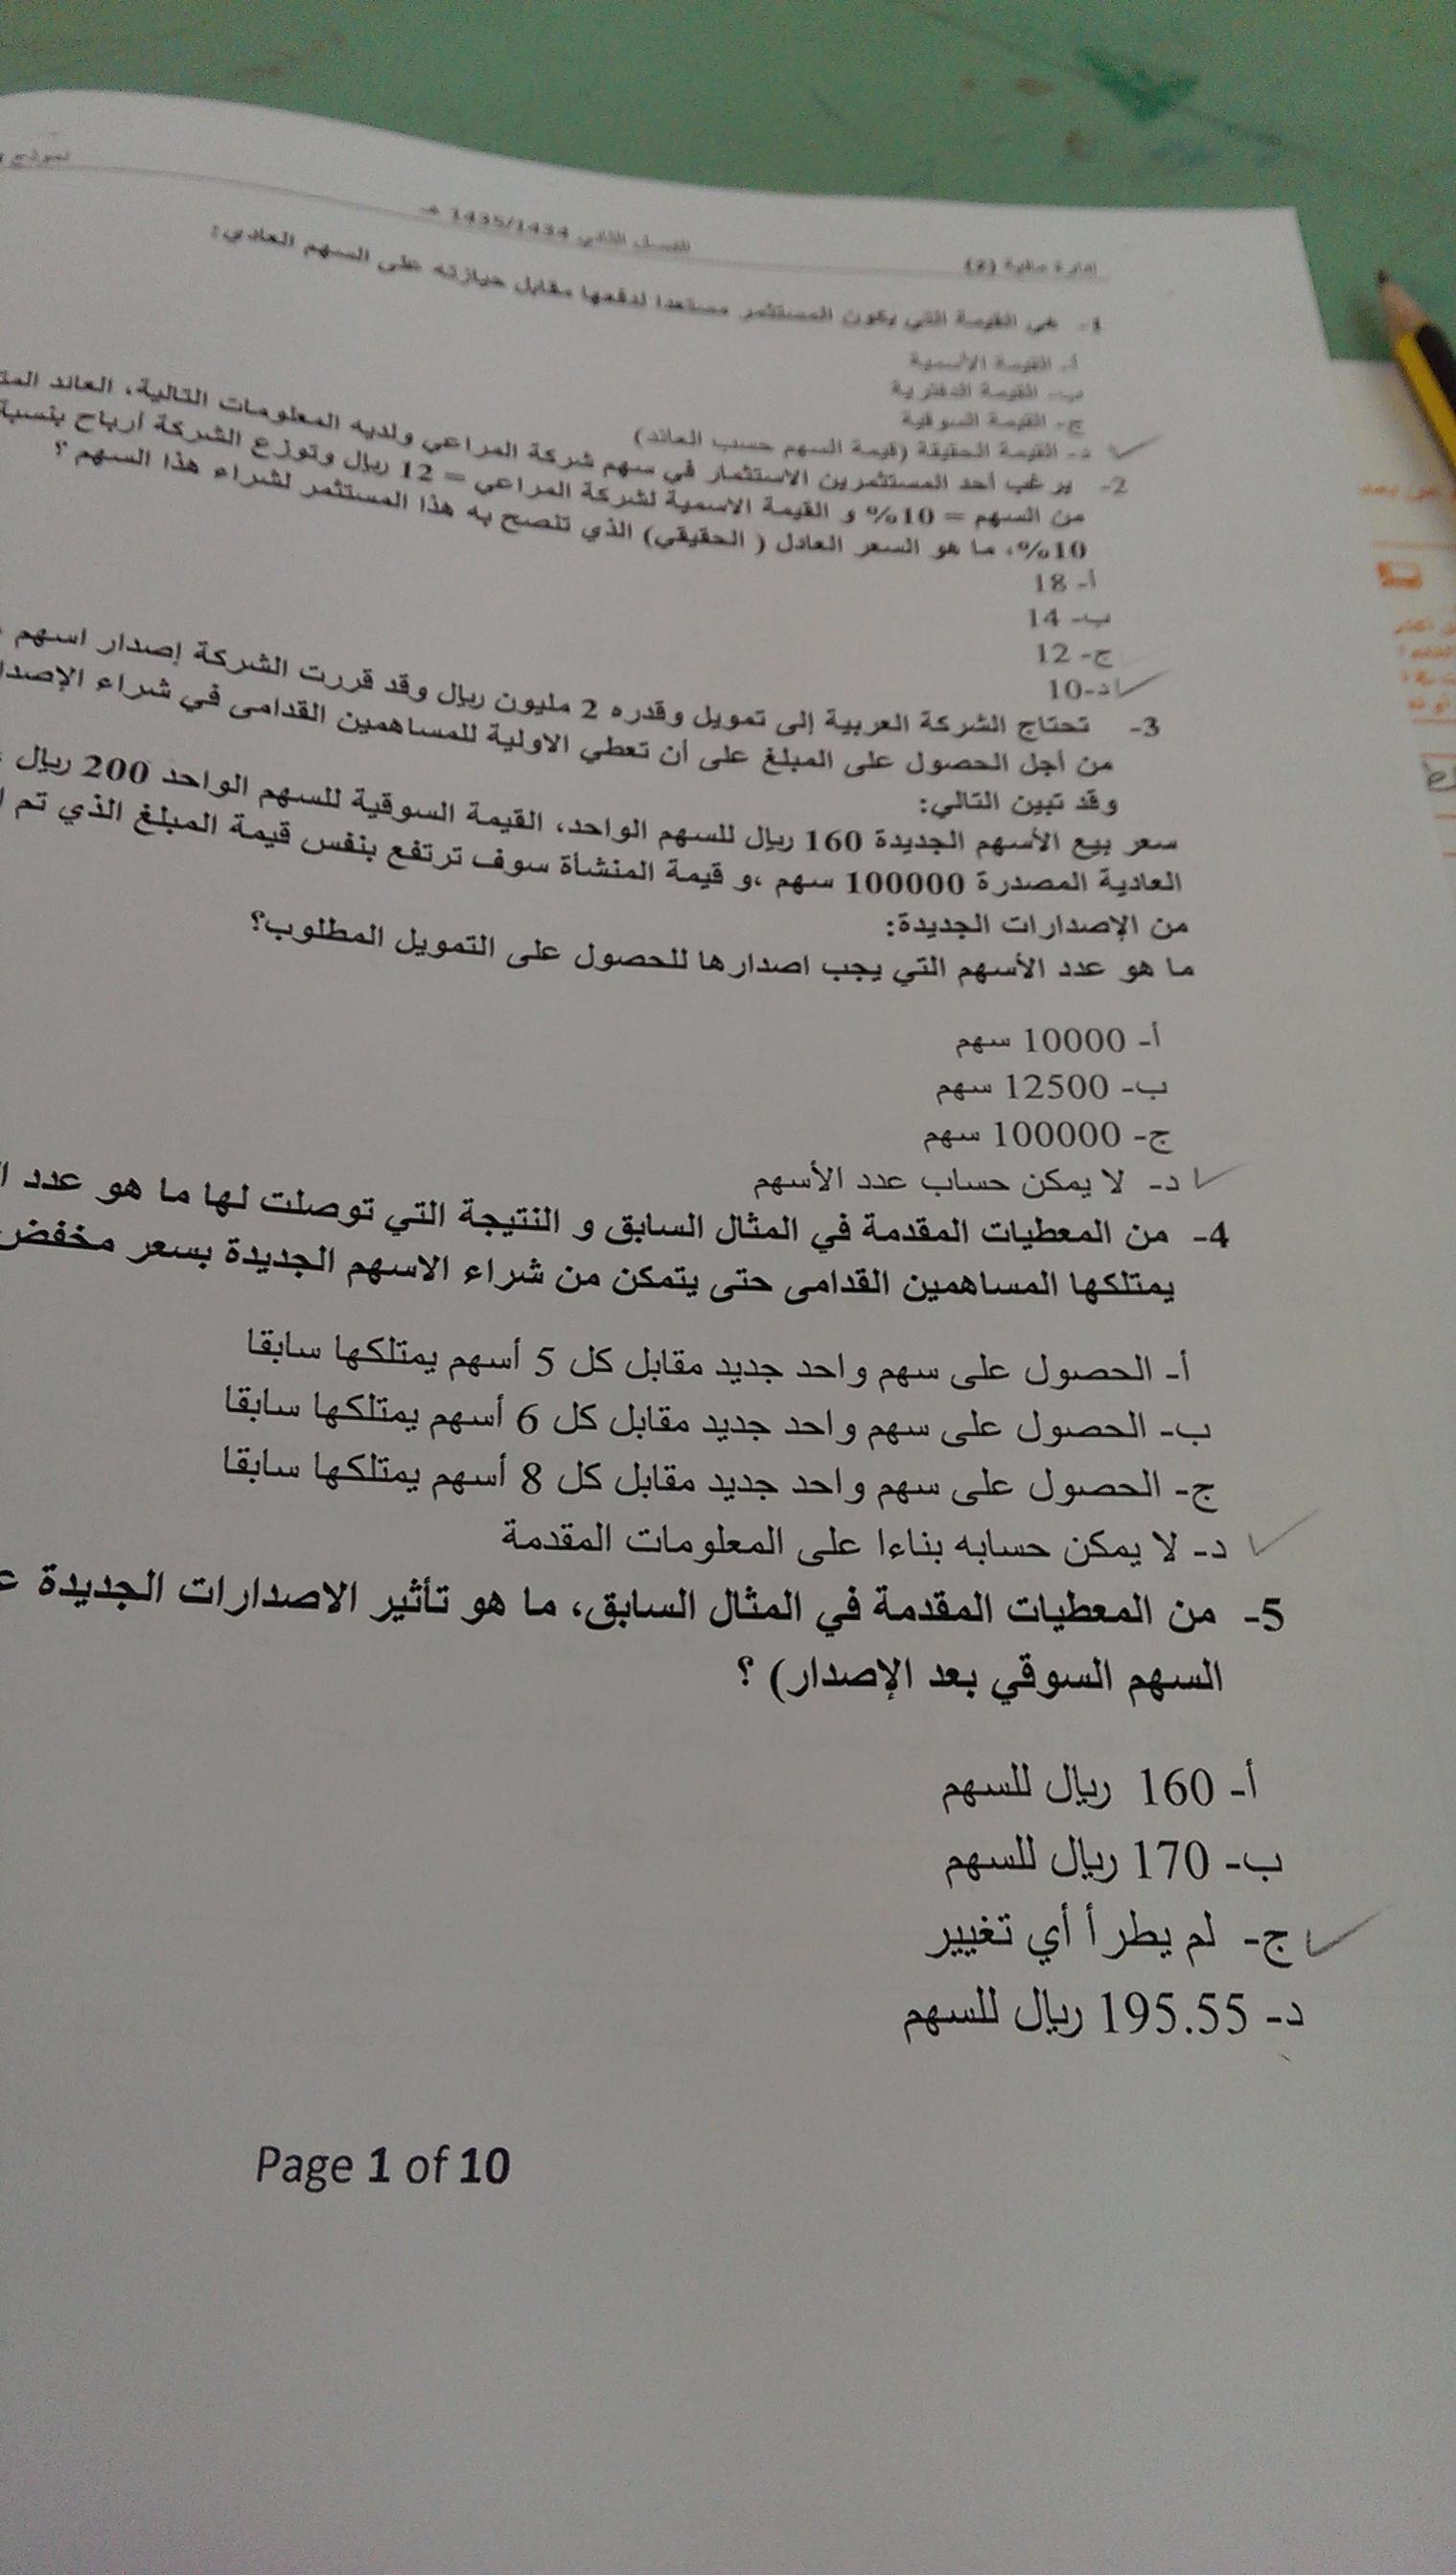 نموذج
إدارة مالية (2) الفصل الثاني 1435/1434 هـ
1- هي القيمة التي يكون المستثمر مستعدا لدفعها مقابل حيازته على السهم العادي:
أ- القيمة الاسمية
ب- القيمة الدفترية
ج- القيمة السوقية
د- القيمة الحقيقة (قيمة السهم حسب العائد)
2- يرغب أحد المستثمرين الاستثمار في سهم شركة المراعي ولديه المعلومات التالية، العائد
من السهم = 10% و القيمة الاسمية لشركة المراعي = 12 ريال وتوزع الشركة أرباح بنسبة
10%، ما هو السعر العادل ( الحقيقي) الذي تنصح به هذا المستثمر لشراء هذا السهم ؟
أ- 18
ب- 14
ج- 12
د-10
3- تحتاج الشركة العربية إلى تمويل وقدره 2 مليون ريال وقد قررت الشركة إصدار اسهم
من أجل الحصول على المبلغ على أن تعطي الاولية للمساهمين القدامى في شراء
وقد تبين التالي:
سعر بيع الأسهم الجديدة 160 ريال للسهم الواحد، القيمة السوقية للسهم الواحد 200 ريال
العادية المصدرة 100000 سهم ،و قيمة المنشأة سوف ترتفع بنفس قيمة المبلغ الذي تم
من الإصدارات الجديدة:
ما هو عدد الأسهم التي يجب اصدارها للحصول على التمويل المطلوب؟
أ- 10000 سهم
ب- 12500 سهم
ج- 100000 سهم
د- لا يمكن حساب عدد الأسهم
4- من المعطيات المقدمة في المثال السابق و النتيجة التي توصلت لها ما هو عدد
يمتلكها المساهمين القدامى حتى يتمكن من شراء الاسهم الجديدة بسعر مخفض
أ- الحصول على سهم واحد جديد مقابل كل 5 أسهم يمتلكها سابقا
ب- الحصول على سهم واحد جديد مقابل كل 6 أسهم يمتلكها سابقا
ج- الحصول على سهم واحد جديد مقابل كل 8 أسهم يمتلكها سابقا
د- لا يمكن حسابه بناءا على المعلومات المقدمة
5- من المعطيات المقدمة في المثال السابق، ما هو تأثير الاصدارات الجديدة
السهم السوقي بعد الإصدار) ؟
أ- 160 ريال للسهم
ب- 170 ريال للسهم
ج- لم يطرأ أي تغيير
د- 195.55 ريال للسهم
Page 1 of 10